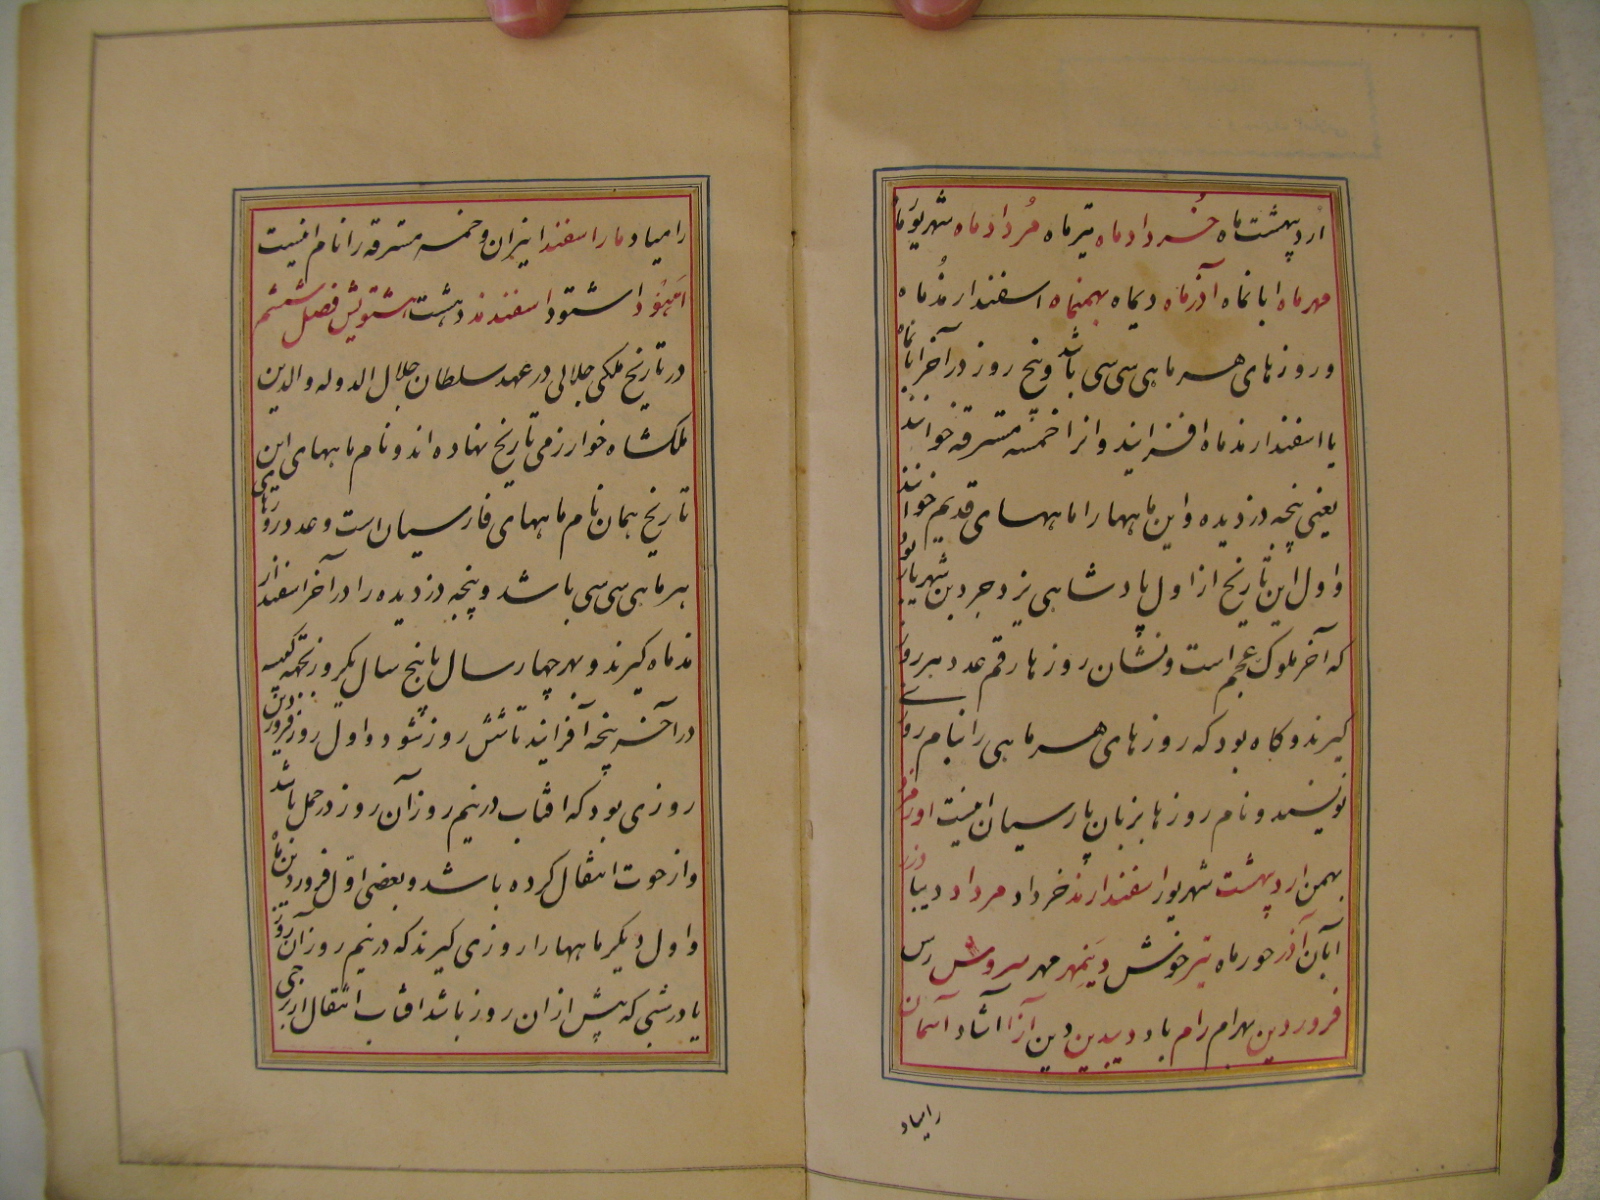 اردیبهشت ماه خرداد ماه تیر ماه مرداد ماه شهریور ماه
مهر ماه ابانماه آذر ماه دیماه بهمنماه اسفندار مذ ماه
و روزهای هر ماهی سی سی باشد و پنج روز در آخر ابانماه
یا اسفندار مذ ماه افزایند و انرا خمسه مسترقه خوانند
یعنی پنجه دزدیده و این ماهها را ماههای قدیم خوانند
و اول این تاریخ از اول پادشاهی یزدجرد بن شهریار بود
که آخر ملوک عجم است و نشان روزها رقم عدد هر روزی
گیرند و گاه بود که روزهای هر ماهی را بنام روز
نویسند و نام روزها بزبان پارسیان اینست اورمزد
بهمن اردیبهشت شهریور اسفندارمذ خرداد مرداد دیباذر
آبان آذر خور ماه تیر جوش دیبمهر مهر سروش رس
فروردین بهرام رام باد دیبدین دین آرا اشاد آسمان
رامیاد
رامیاد مار اسفند انیران و خمسه مسترقه را نام اینست
اهنود اشتود اسفند مذ دهشت هشتویش فصل ششم
در تاریخ ملکی جلالی در عهد سلطان جلال الدوله والدین
ملکشاه خوارزمی تاریخ نهاده اند و نام ماههای این
تاریخ همان نام ماههای فارسیان است و عدد روزهای
هر ماهی سی سی باشد و پنجه دزدیده را در آخر اسفندار
مذ ماه گیرند و بهر چهار سال یا پنج سال یکروز بجهه کبیسه
در آخر پنجه آفزایند تا شش روز شود و اول روز فروردین
روزی بود که افتاب در نیم روز آن روز در حمل باشد
و از حوت انتقال کرده باشد و بعضی اول فروردین ماه
و اول دیگر ماهها را روزی گیرند که در نیم روز آن روز
یا در شبی که پیش از ان روز باشد افتاب انتقال از برجی